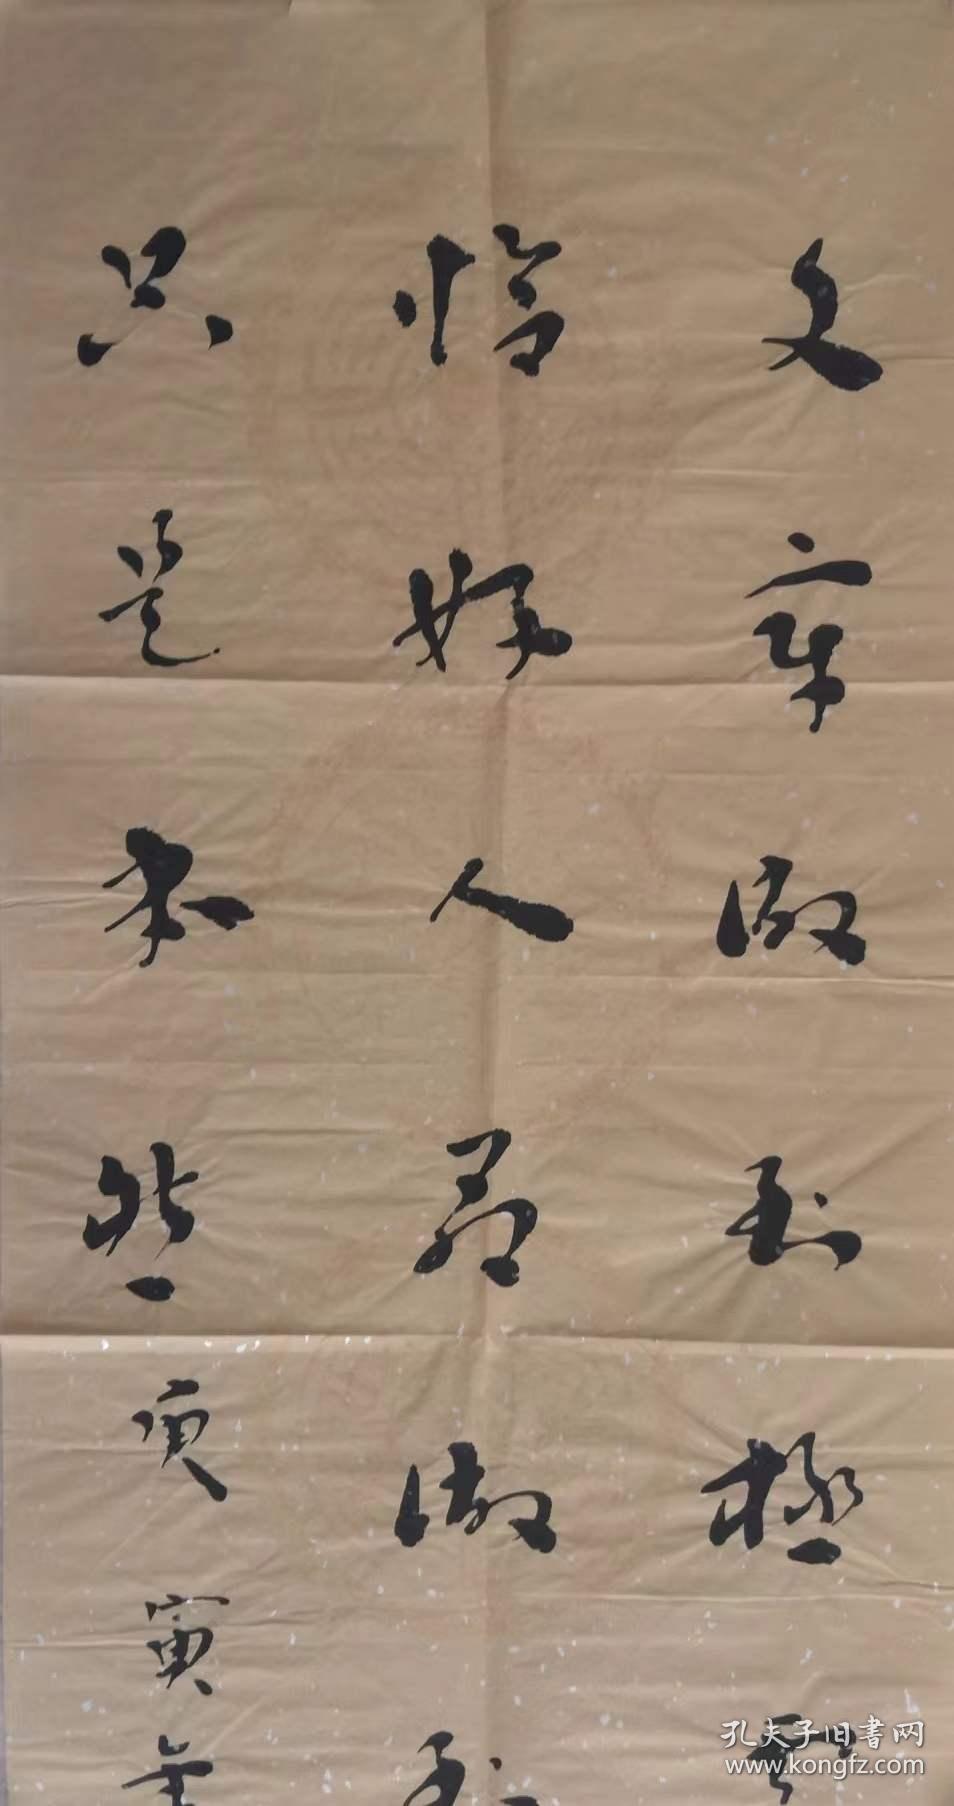 文章做到極處
恰好人品做到
只是本然庚寅年
孔夫子旧書网
www.kongfz.com